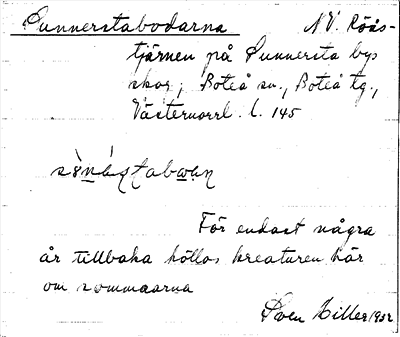 Sunnerstabodarna N.V. Röås-
tjärnen på Sunnersta bys
skog, Boteå sn., Boteå tg.,
Västernorrl. l. 145
För endast några
år tillbaka höllos kreaturen här
om sommarna
Sven Hiller 1932